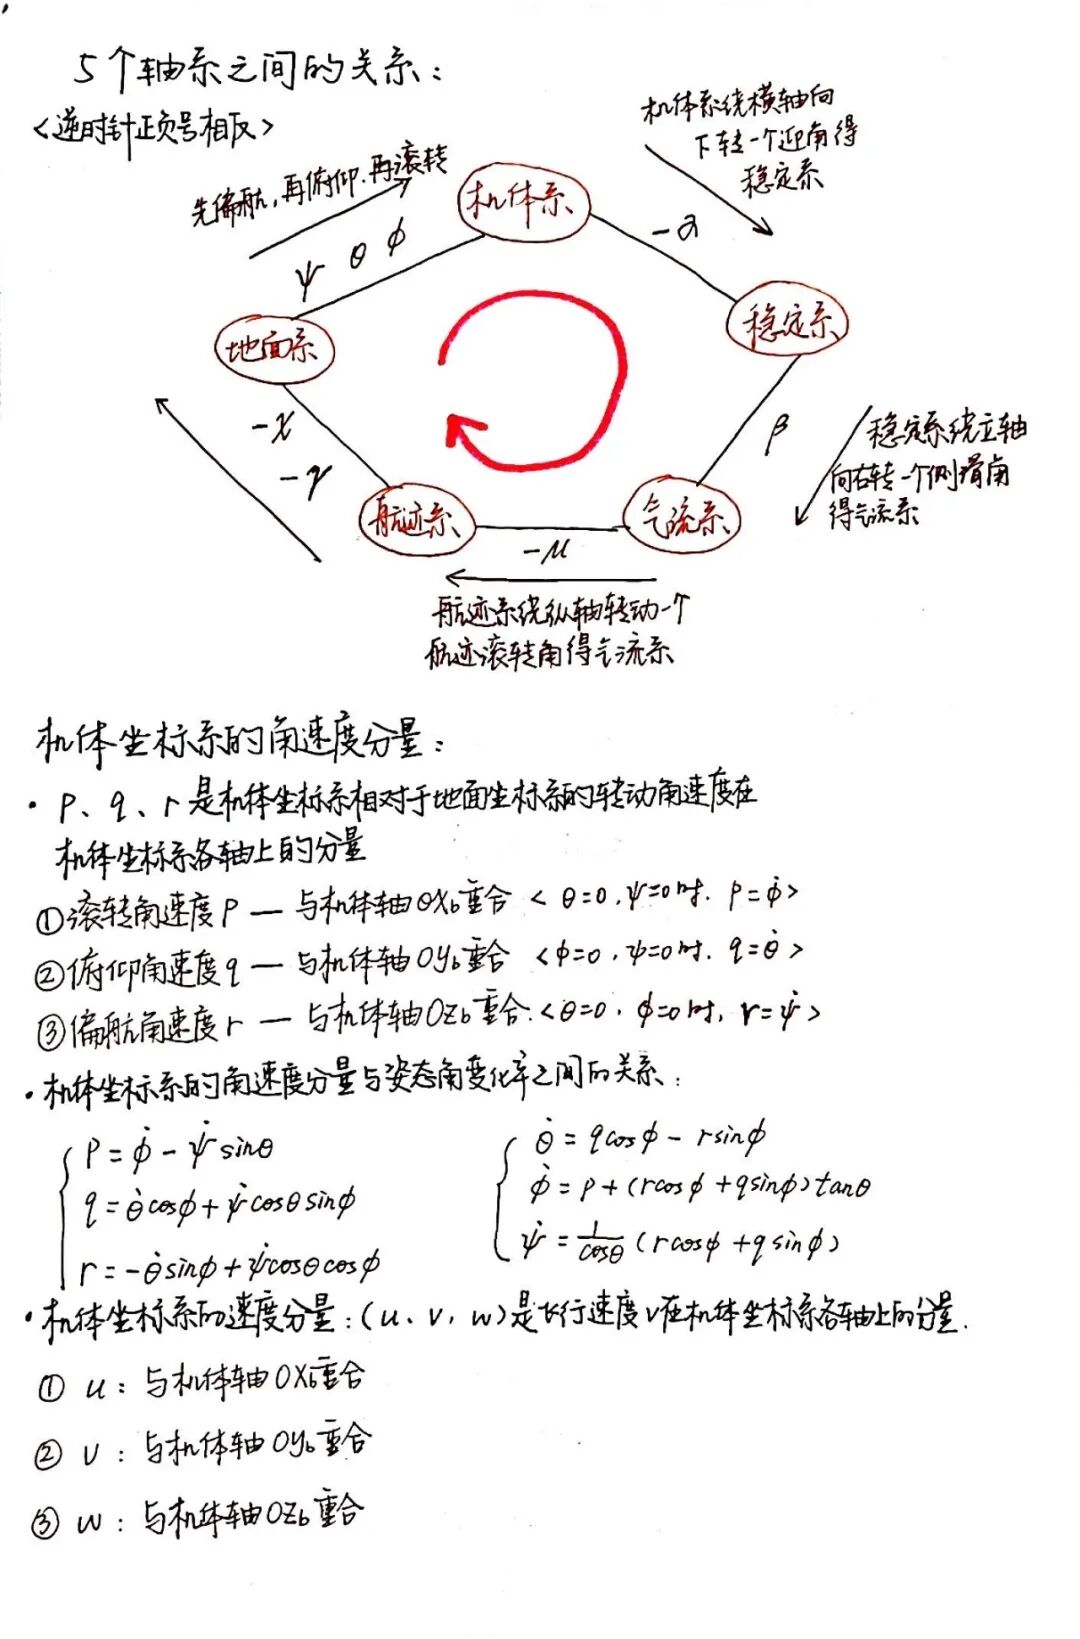 5个轴系之间的关系：
<逆时针正负号相反>
先偏航，再俯仰.再滚转
机体系绕横轴向
下转一个迎角得
稳定系
机体系
ψ θ ϕ
-α
地面系
稳定系
-χ
-γ
β
稳定系绕立轴
向右转一个侧滑角
得气流系
航迹系
气流系
-μ
航迹系绕纵轴转动一个
航迹滚转角得气流系
机体坐标系的角速度分量：
· p、q、r是机体坐标系相对于地面坐标系的转动角速度在
机体坐标系各轴上的分量
①滚转角速度p — 与机体轴OXb重合 < θ=0.ψ=0时. p=ϕ̇>
②俯仰角速度q — 与机体轴Oyb重合 <ϕ=0，ψ=0时. q=θ̇>
③偏航角速度r — 与机体轴OZb重合.<θ=0，ϕ=0时，r=ψ̇>
·机体坐标系的角速度分量与姿态角变化率之间的关系：
p=ϕ̇-ψ̇sinθ
q=θ̇cosϕ+ψ̇cosθsinϕ
r=-θ̇sinϕ+ψ̇cosθcosϕ
θ̇=qcosϕ-rsinϕ
ϕ̇=p+(rcosϕ+qsinϕ)tanθ
ψ̇=1/cosθ(rcosϕ+qsinϕ)
·机体坐标系的速度分量：(u、v，w)是飞行速度v在机体坐标系各轴上的分量.
① u：与机体轴OXb重合
② v：与机体轴Oyb重合
③ w：与机体轴OZb重合